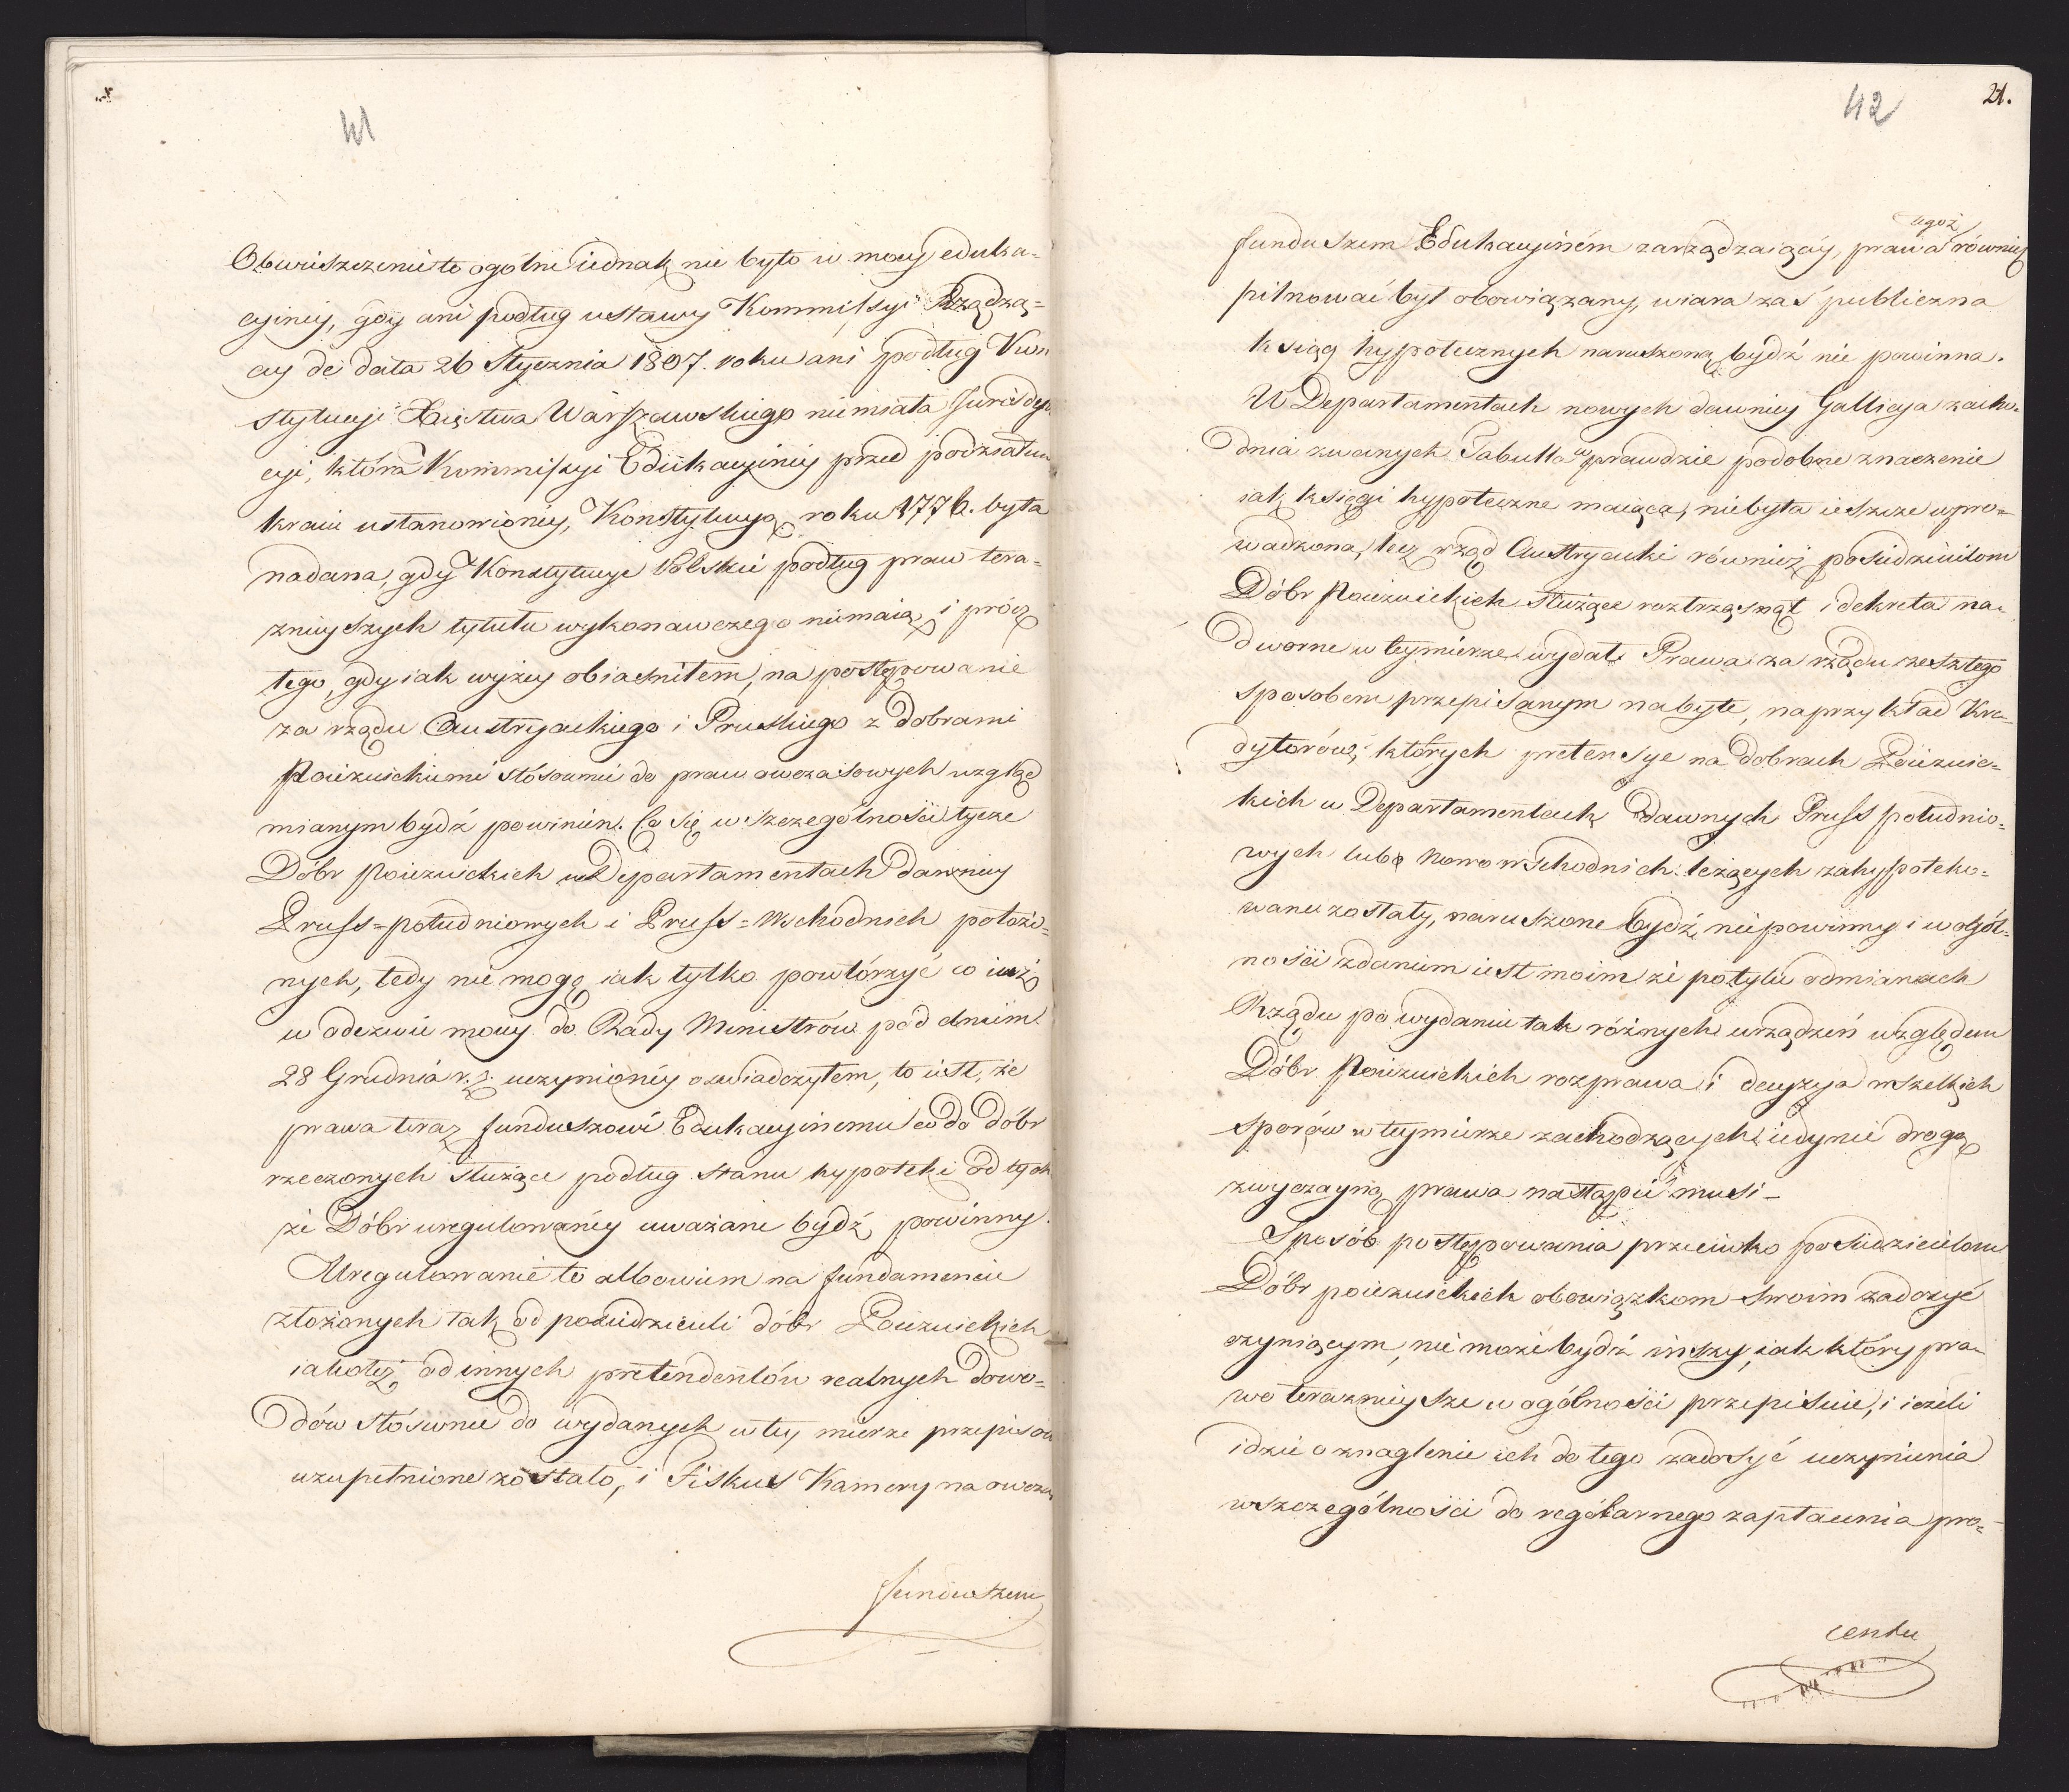 41
Obwieszczenie to ogólne iednak nie było w mocy eduka=
cyiney, gdy ani podług ustawy Kommissyi Rządzą=
cey de data 26 Stycznia 1807. roku ani podług Kon
stytucyi Xięstwa Warszawskiego niemiała Jurisdyk
cyi, która Kommissyi Edukacyiney przed podziałem
kraiu ustanowioney, Konstytucyą roku 1776. była
nadana, gdy Konstytucye Polskie podług praw tera=
znieyszych tytułu wykonawczego niemaią, i prócz
tego, gdy iak wyżey obiasniłem, na postępowanie
za rządu Austryackiego i Pruskiego z Dobrami
Poiezuickiemi stósownie do praw owczasowych wzgląd
mianym bydź powinien. Co się w szczególności tycze
Dóbr Poiezuickich w Departamentach dawniey
Pruss=południowych i Pruss=Wschodnich położo=
nych, tedy nie mogę iak tylko powtórzyć co iuż
w odezwie moiey do Rady Ministrów pod dniem
28 Grudnia r. z. uczynioney oswiadczyłem, to iest, że
prawa teraz funduszowi Edukacyinemu co do dóbr
rzeczonych służące podług stanu hypoteki od tych
że Dóbr uregulowaney uważane bydź powinny.
Uregulowanie to albowiem na fundamencie
złożonych tak od posiedzicieli dóbr Poiezuickich
iakoteż od innych pretendentów realnych dowo=
dów stósownie do wydanych w tey mierze przepisów
uzupełnione zostało, i Fiskus Kamery na owczas
funduszem
42
21.
funduszem Edukacyiném zarządzaiącey, prawa ugoż równiez
pilnować był obowiązany, wiara zaś publiczna
ksiąg hypotecznych naruszoną bydź nie powinna.
W Departamentach nowych dawniey Gallicya zacho=
dnia zwanych Tabulla w prawdzie podobne znaczenie
iak księgi hypoteczne maiąca, niebyła ieszcze wpro=
wadzona, lecz rząd Austryacki równiez posiedzicielom
Dóbr Poiezuickich służące roztrząsnął i dekreta na=
dworne w teymierze wydał. Prawa za rządu zeszłego
sposobem przepisanym nabyte, naprzykład Kre=
dytorów, których pretensye na dobrach Poiezuic=
kich w Departamentach dawnych Pruss południo=
wych lub Nowo wschodnich leżących zahypoteko=
wane zostały, naruszone bydź niepowinny i w ogól=
ności zdaniem iest moim że po tylu odmianach
Rządu po wydaniu tak różnych urządzeń względem
Dóbr Poiezuickich rozprawa i decyzya wszelkich
sporów w teymierze zachodzących iedynie drogą
zwyczayną prawa nastąpić musi_
Sposób postępowania przeciwko posiedzicielom
Dóbr poiezuickich obowiązkom swoim zadosyć
czyniącym, nie może bydź inszy, iak który pra=
wo teraznieysze w ogólności przepisuie, i ieżeli
idzie o znaglenie ich do tego zadosyć uczynienia
wszczególności do regularnego zapłacenia pro=
centu